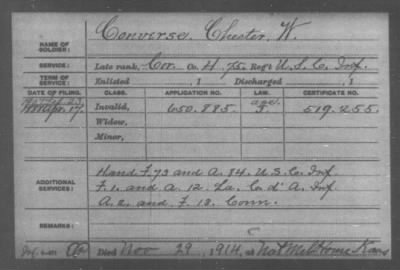 NAME OF SOLDIER: Converse, Chester W.
SERVICE: Late rank, Cor. Co. H, 75 Reg't U.S.C. Inf.
TERM OF SERVICE: Enlisted , 1 Discharged , 1
DATE OF FILING. CLASS. APPLICATION NO. LAW. CERTIFICATE NO.
Apr. 17. Invalid, 650.885 519.255
Widow,
Minor,
ADDITIONAL SERVICES: H and F. 73 and A. 84. U.S.C. Inf.
F. 1. and A. 12. La. C. d' A. Inf.
A. 2. and F. 13. Conn.
REMARKS:
Died Nov 29, 1914, at Nat Mil Home Kans